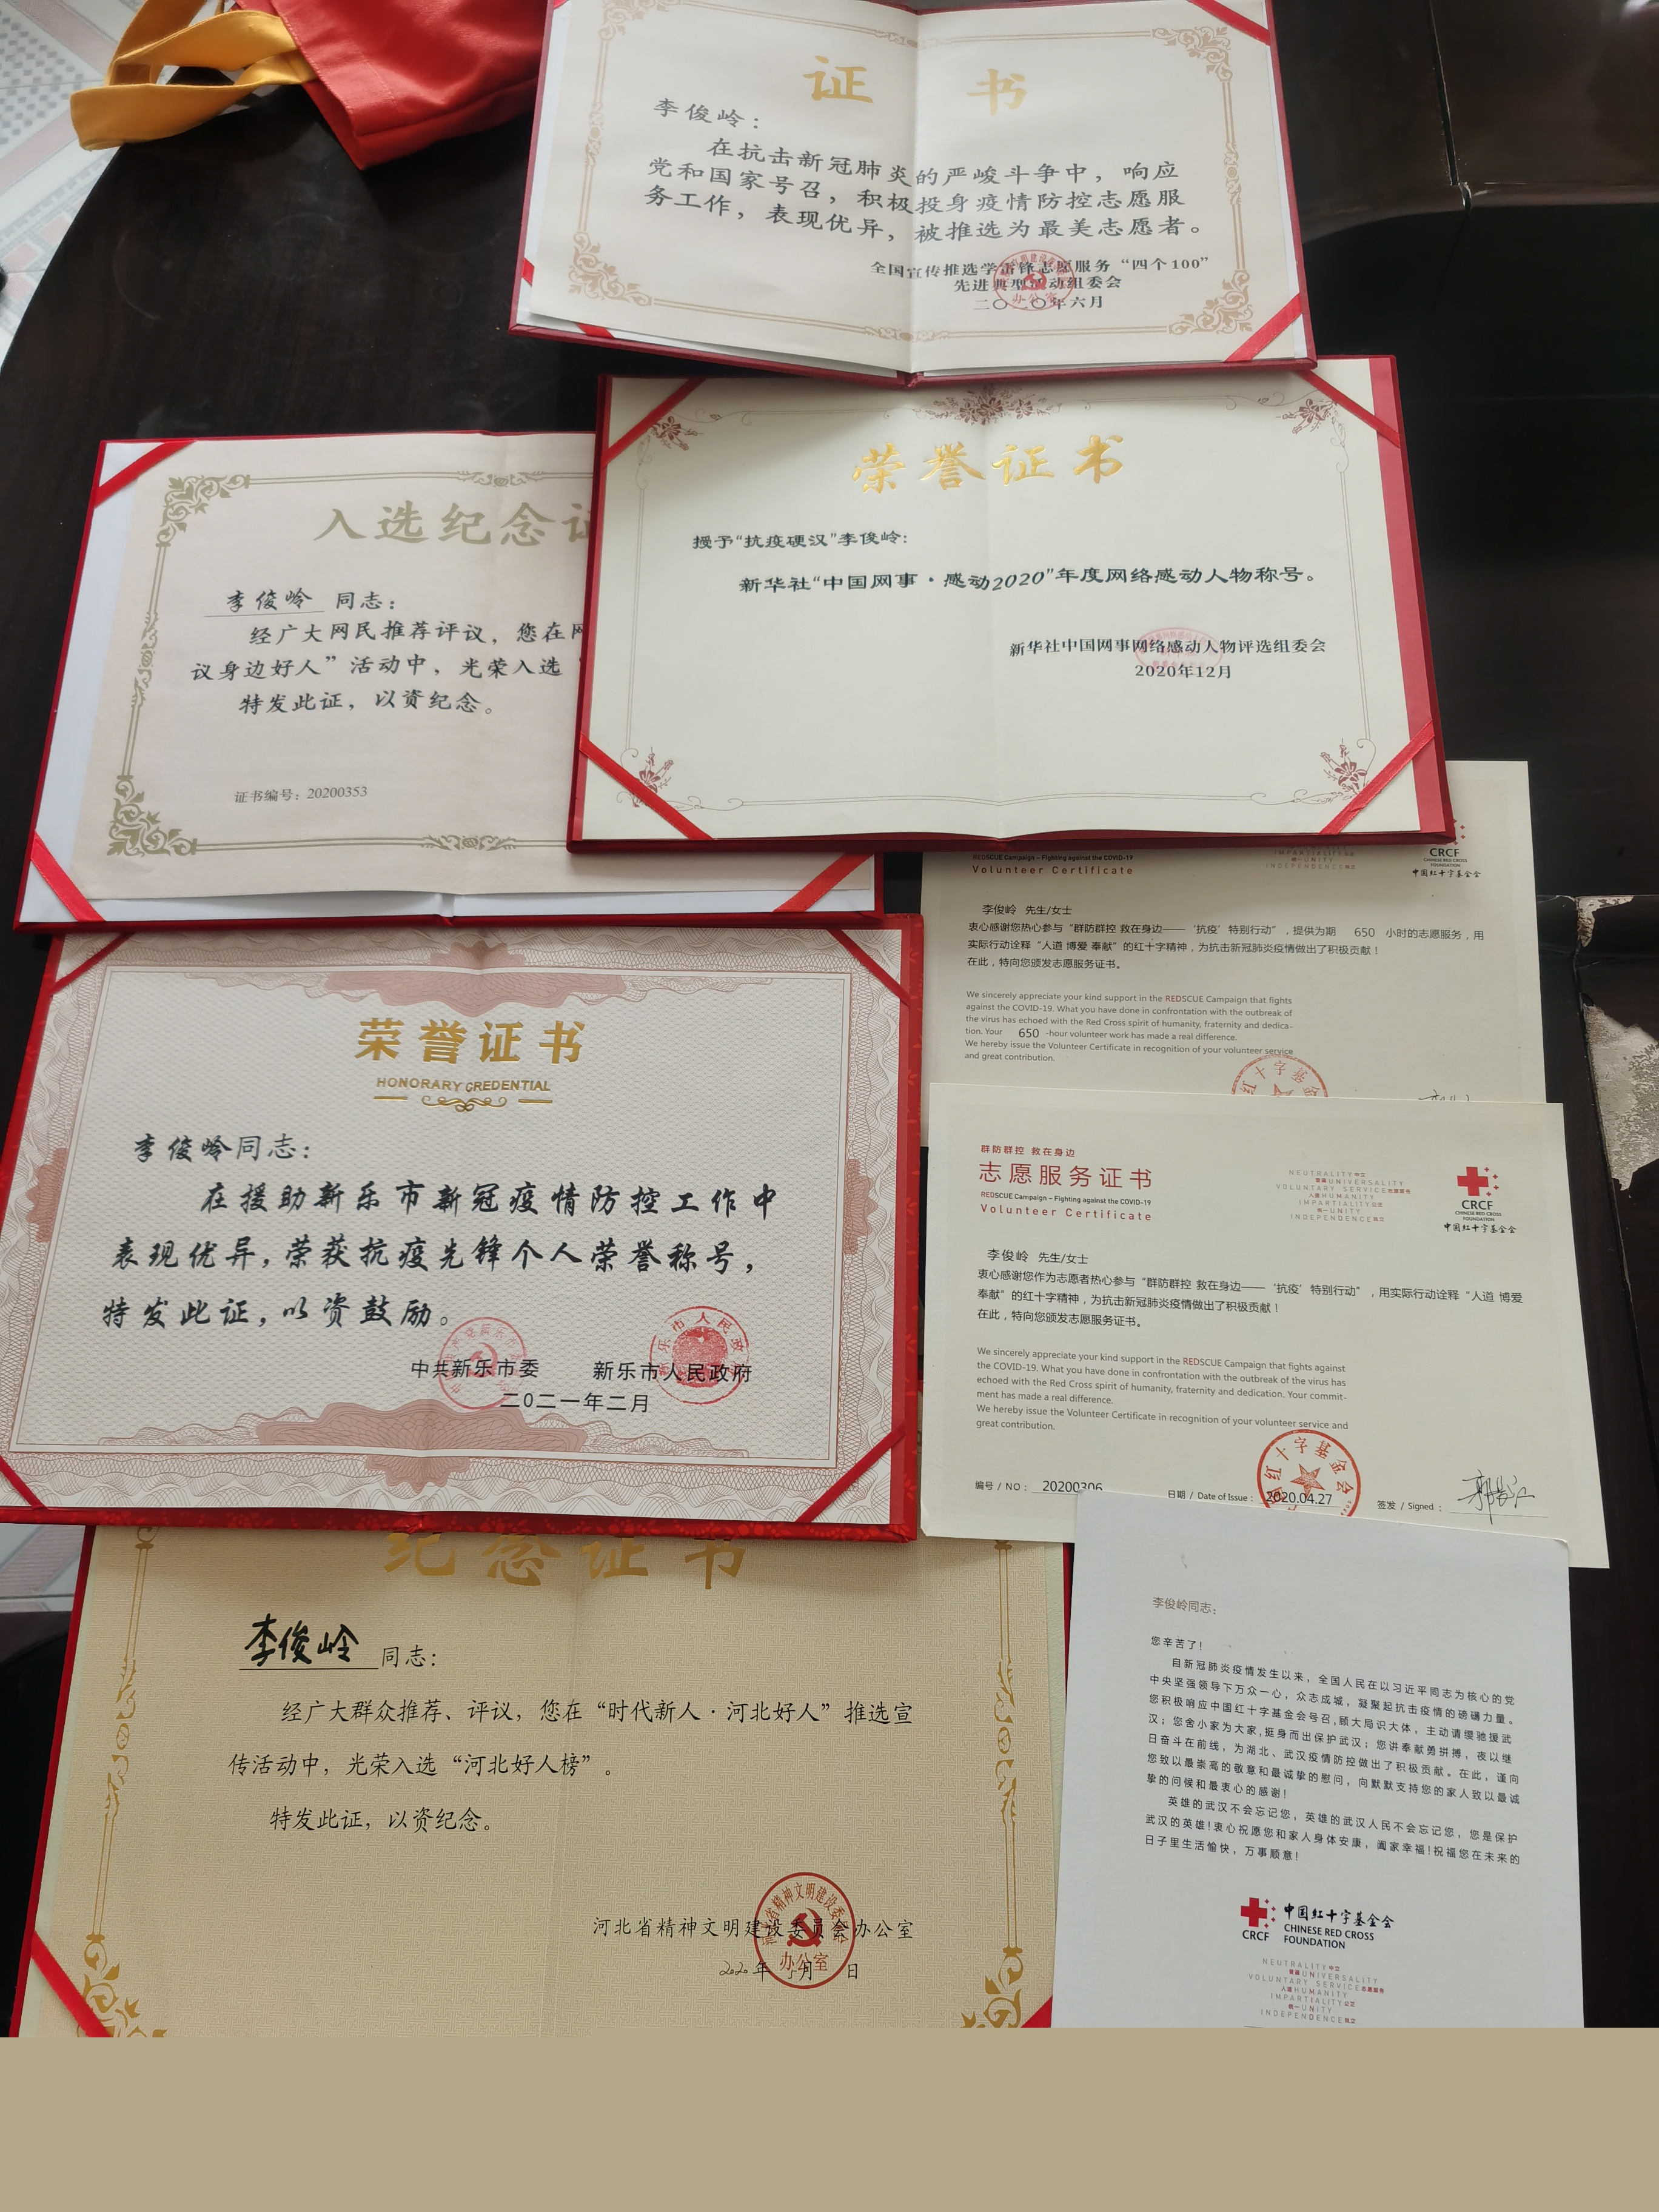 证 书
李俊岭：
在抗击新冠肺炎的严峻斗争中，响应
党和国家号召，积极投身疫情防控志愿服
务工作，表现优异，被推选为最美志愿者。
全国宣传推选学雷锋志愿服务“四个100”
先进典型活动组委会
二〇二〇年六月
荣誉证书
授予“抗疫硬汉”李俊岭：
新华社“中国网事·感动2020”年度网络感动人物称号。
新华社中国网事网络感动人物评选组委会
2020年12月
入选纪念证
李俊岭 同志：
经广大网民推荐评议，您在网
议身边好人”活动中，光荣入选
特发此证，以资纪念。
证书编号：20200353
IMPARTIALITY公正
统一UNITY
INDEPENDENCE独立
CRCF
CHINESE RED CROSS
FOUNDATION
中国红十字基金会
REDSCUE Campaign – Fighting against the COVID-19
Volunteer Certificate
李俊岭 先生/女士
衷心感谢您热心参与“群防群控 救在身边——‘抗疫’特别行动”，提供为期 650 小时的志愿服务，用
实际行动诠释“人道 博爱 奉献”的红十字精神，为抗击新冠肺炎疫情做出了积极贡献！
在此，特向您颁发志愿服务证书。
We sincerely appreciate your kind support in the REDSCUE Campaign that fights
against the COVID-19. What you have done in confrontation with the outbreak of
the virus has echoed with the Red Cross spirit of humanity, fraternity and dedica-
tion. Your 650 -hour volunteer work has made a real difference.
We hereby issue the Volunteer Certificate in recognition of your volunteer service
and great contribution.
红十字基金
荣誉证书
HONORARY CREDENTIAL
李俊岭同志：
在援助新乐市新冠疫情防控工作中
表现优异，荣获抗疫先锋个人荣誉称号，
特发此证，以资鼓励。
中共新乐市委 新乐市人民政府
二〇二一年二月
群防群控 救在身边
志愿服务证书
REDSCUE Campaign – Fighting against the COVID-19
Volunteer Certificate
NEUTRALITY中立
普遍UNIVERSALITY
VOLUNTARY SERVICE志愿服务
人道HUMANITY
IMPARTIALITY公正
统一UNITY
INDEPENDENCE独立
CRCF
CHINESE RED CROSS
FOUNDATION
中国红十字基金会
李俊岭 先生/女士
衷心感谢您作为志愿者热心参与“群防群控 救在身边——‘抗疫’特别行动”，用实际行动诠释“人道 博爱
奉献”的红十字精神，为抗击新冠肺炎疫情做出了积极贡献！
在此，特向您颁发志愿服务证书。
We sincerely appreciate your kind support in the REDSCUE Campaign that fights against
the COVID-19. What you have done in confrontation with the outbreak of the virus has
echoed with the Red Cross spirit of humanity, fraternity and dedication. Your commit-
ment has made a real difference.
We hereby issue the Volunteer Certificate in recognition of your volunteer service and
great contribution.
红十字基金会
编号 / NO： 20200306
日期 / Date of Issue： 2020.04.27
签发 / Signed：
纪念证书
李俊岭 同志：
经广大群众推荐、评议，您在“时代新人·河北好人”推选宣
传活动中，光荣入选“河北好人榜”。
特发此证，以资纪念。
河北省精神文明建设委员会办公室
2020年 月 日
河北省精神文明建设委员会
办公室
李俊岭同志：
您辛苦了！
自新冠肺炎疫情发生以来，全国人民在以习近平同志为核心的党
中央坚强领导下万众一心，众志成城，凝聚起抗击疫情的磅礴力量。
您积极响应中国红十字基金会号召，顾大局识大体，主动请缨驰援武
汉；您舍小家为大家，挺身而出保护武汉；您讲奉献勇拼搏，夜以继
日奋斗在前线，为湖北、武汉疫情防控做出了积极贡献。在此，谨向
您致以最崇高的敬意和最诚挚的慰问，向默默支持您的家人致以最诚
挚的问候和最衷心的感谢！
英雄的武汉不会忘记您，英雄的武汉人民不会忘记您，您是保护
武汉的英雄！衷心祝愿您和家人身体安康，阖家幸福！祝福您在未来的
日子里生活愉快，万事顺意！
CRCF
中国红十字基金会
CHINESE RED CROSS
FOUNDATION
NEUTRALITY中立
普遍UNIVERSALITY
VOLUNTARY SERVICE志愿服务
人道HUMANITY
IMPARTIALITY公正
统一UNITY
INDEPENDENCE独立